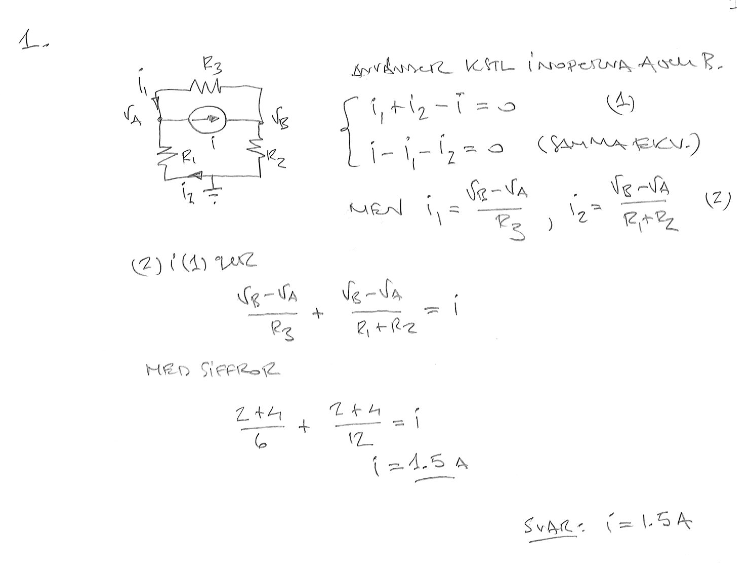 1.
R3
i1
VA
VB
i
R1
R2
i2
ANVÄNDER KSTL I NODERNA A OCH B.
i1 + i2 - i = 0 (1)
i - i1 - i2 = 0 (SAMMA EKV.)
MEN i1 = (VB-VA)/R3 , i2 = (VB-VA)/(R1+R2) (2)
(2) i (1) GER
(VB-VA)/R3 + (VB-VA)/(R1+R2) = i
MED SIFFROR
(2+4)/6 + (2+4)/12 = i
i = 1.5 A
SVAR: i = 1.5 A